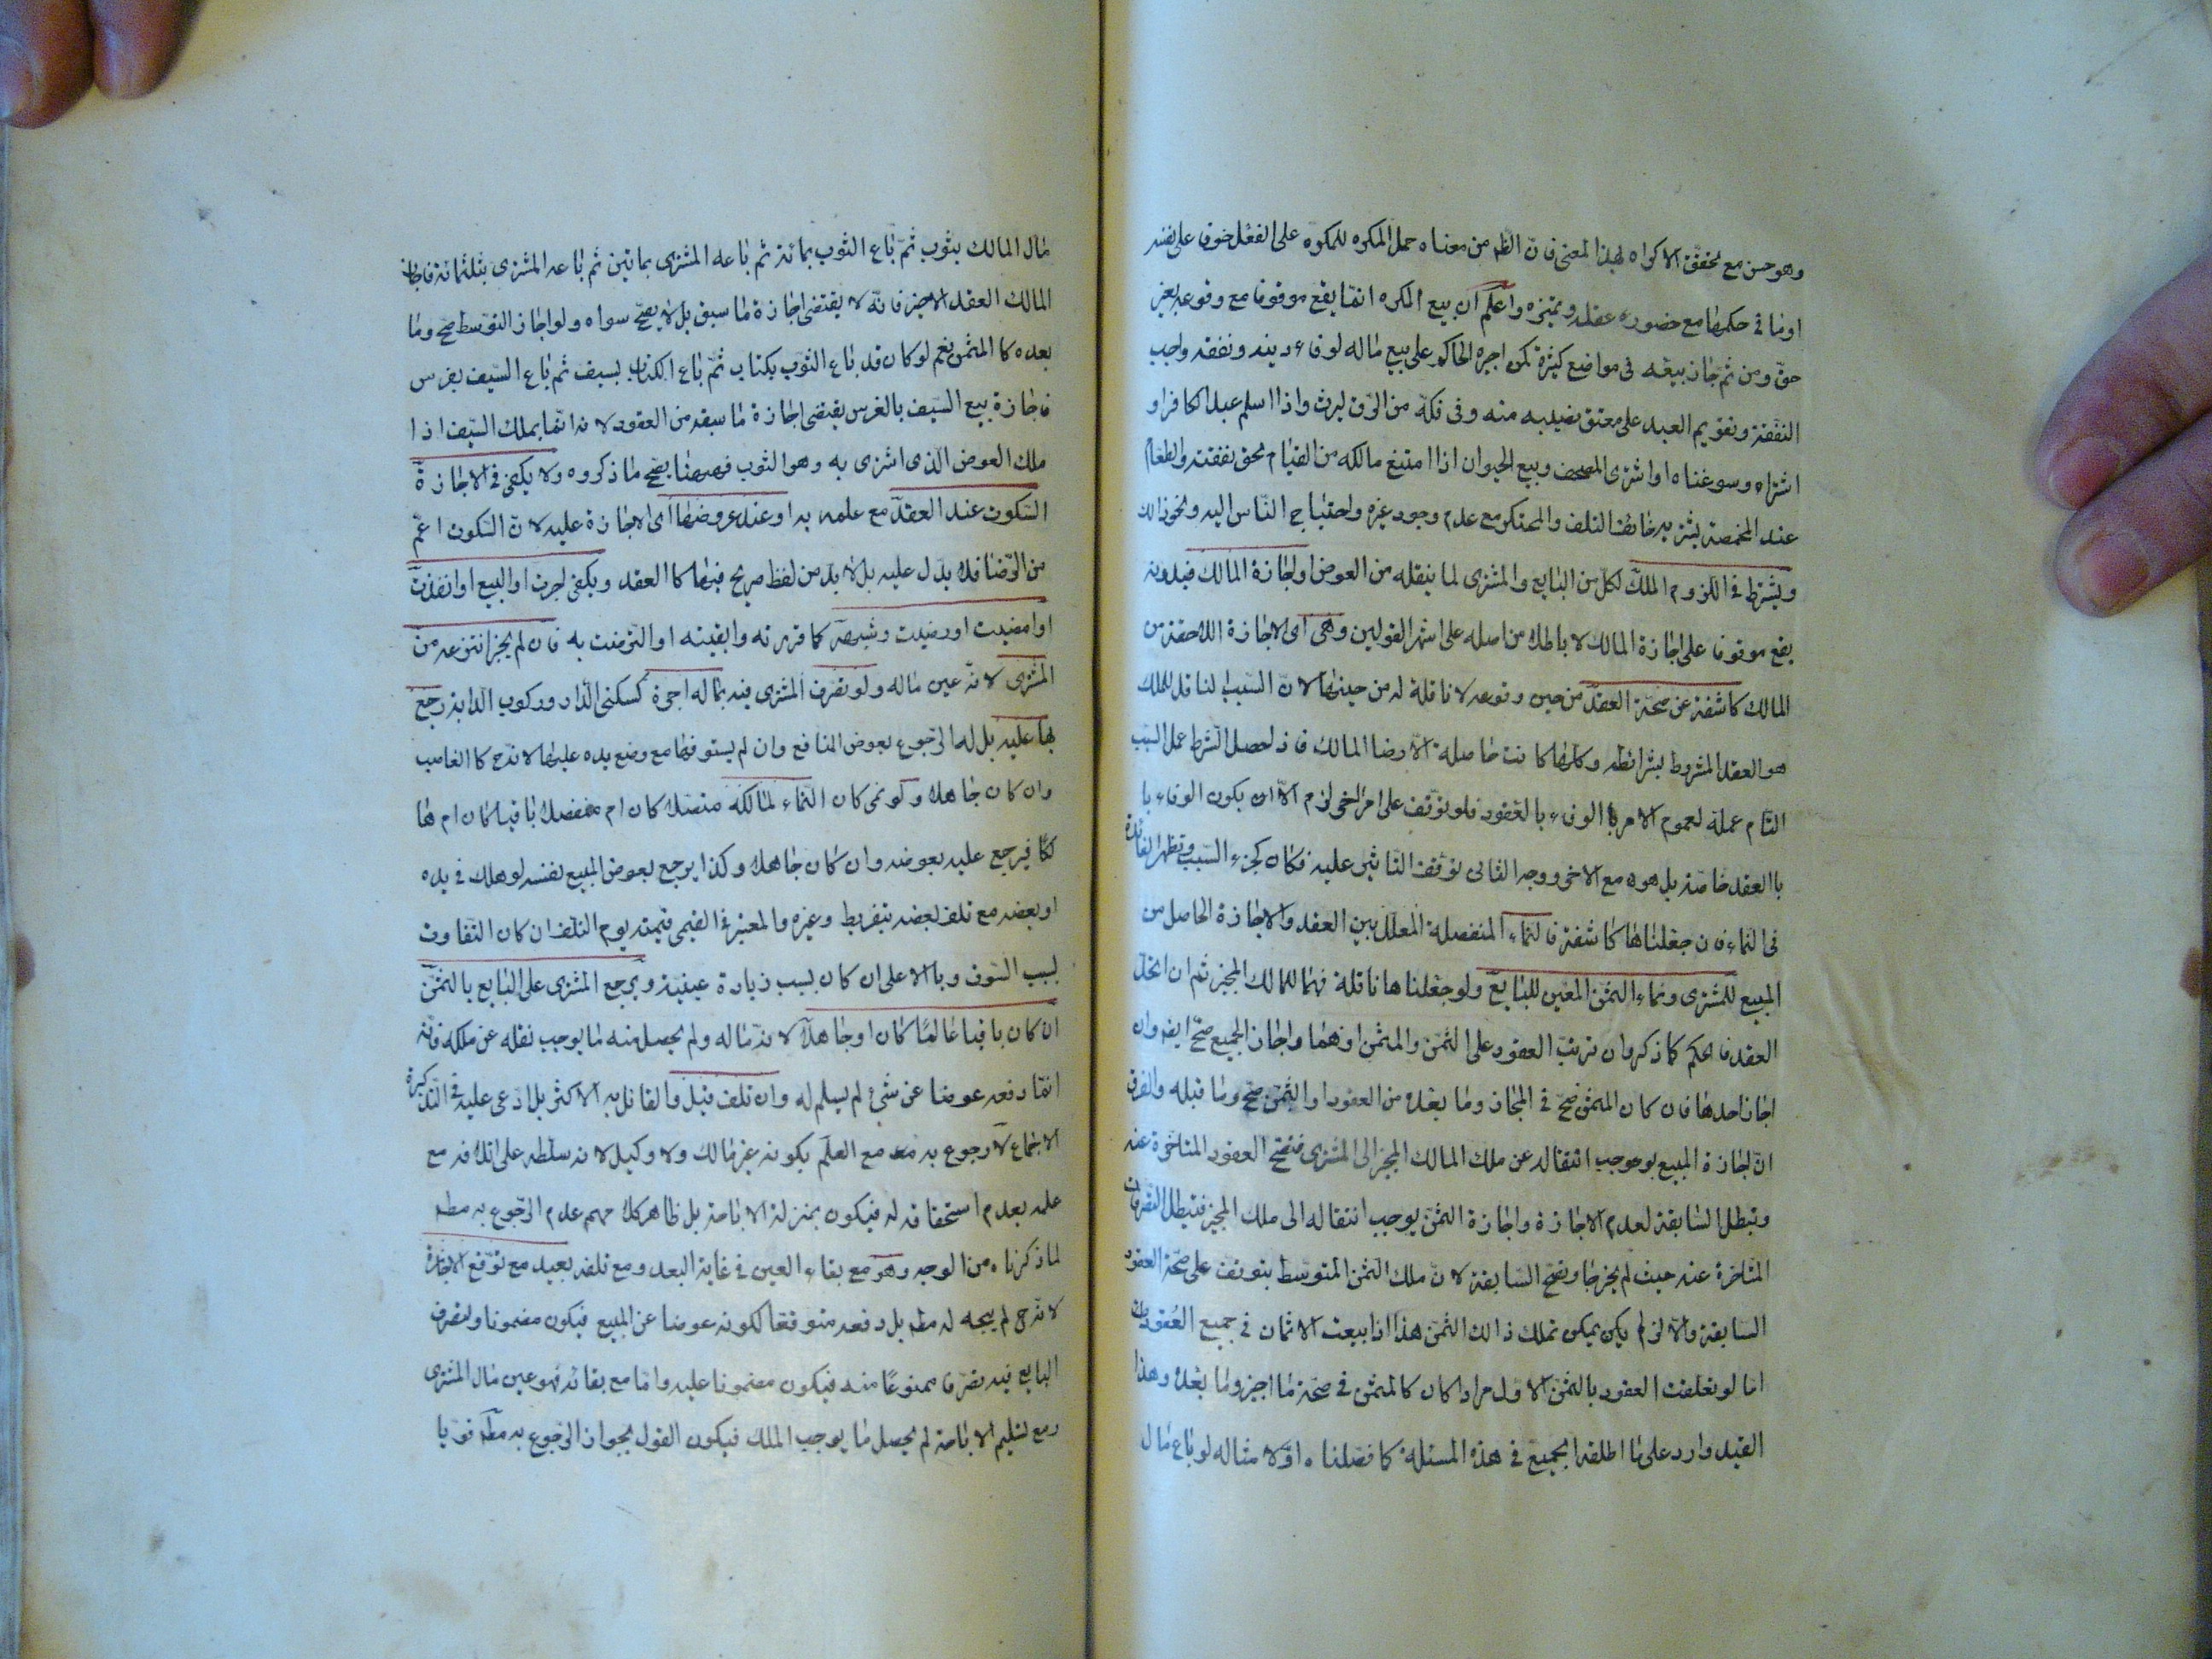 وهو حسن مع تحقق الاكراه لهذا المعنى فان الظ من معناه حمل المكرِه للمكرَه على الفعل خوفا على نفسه
او ما في حكمها مع حضور عقله وتميزه واعلم ان بيع المكره انما يقع موقوفا مع وقوعه بغير
حق ومن ثم جاز بيعه في مواضع كثيرة كمن اجبره الحاكم على بيع ماله لوفاء دينه ونفقة واجب
النفقة وتقويم العبد على معتق نصيبه منه وفي فكه من الرق ليرث واذا اسلم عبد الكافر او
اشتراه وسوغناه او اشترى المصحف وبيع الحيوان اذا امتنع مالكه من القيام بحق نفقته والطعام
عند المخمصة يشتريه خائف التلف والمحتكر مع عدم وجود غيره واحتياج الناس اليه ونحو ذلك
ويشترط في اللزوم الملك لكل من البايع والمشترى لما ينقله من العوض او اجازة المالك فبدونه
يقع موقوفا على اجازة المالك لا باطلا من اصله على اشهر القولين وهى اى الاجازة اللاحقة من
المالك كاشفة عن صحة العقد من حين وقوعه لا ناقلة له من حينها لان السبب الناقل للملك
هو العقد المشروط بشرائطه وكلها كانت حاصلة الا رضا المالك فاذا حصل الشرط عمل السبب
التام عمله لعموم الامر با الوفاء بالعقود فلو توقف على امر اخر لزم الا ان يكون الوفاء با
با العقد خاصة بل هو مع الاخر ووجه الثانى توقف التاثير عليه فكان كجزء السبب وتظهر الفائدة
في النماء فان جعلناها كاشفة فالنماء المنفصلة المتخلل بين العقد والاجازة الحاصل من
المبيع للمشترى ونماء الثمن المعين للبايع ولو جعلناها ناقلة فهما للمالك المجيز ثم ان اتحد
العقد فالحكم كما ذكر وان ترتبت العقود على الثمن والمثمن او هما واجاز الجميع صح ايضا وان
اجاز احدها فان كان المثمن صح في المجاز وما بعده من العقود او الثمن صح وما قبله والفرق
ان اجازة المبيع يوجب انتقاله عن ملك المالك المجيز الى المشترى فتصح العقود المتاخرة عنه
وتبطل السابقة لعدم الاجازة واجازة الثمن يوجب انتقاله الى ملك المجيز فتبطل التصرفات
المتاخرة عنه حيث لم يجزها وتصح السابقة لان ملك الثمن المتوسط يتوقف على صحة العقود
السابقة والا لزم يكن يمكن تملك ذالك الثمن هذا اذا بيعت الاثمان في جميع العقود
اما لو تعلقت العقود بالثمن الاول مرارا كان كالمثمن في صحة ما اجيز وما بعده وهذا
القيد وارد على ما اطلقه الجميع في هذه المسئلة كما فصلناه اولا مثاله لو باع مال
مال المالك بثوب ثم باع الثوب بمائة ثم باعه المشترى بماتين ثم باعه المشترى بثلثمائة فاجاز
المالك العقد الاخير فانه لا يقتضى اجازة ما سبق بل لا يصح سواه ولو اجاز المتوسط صح وما
بعده كا المثمن نعم لو كان قد باع الثوب بكتاب ثم باع الكتاب بسيف ثم باع السيف بفرس
فاجازة بيع السيف بالفرس يقتضى اجازة ما سبقه من العقود لانه انما يملك السيف اذا
ملك العوض الذى اشترى به وهو الثوب فههنا يصح ما ذكروه ولا يكفى في الاجازة
السكوت عند العقد مع علمه به او عند عروضها اى الاجازة عليه لان السكوت اعم
من الرضا فلا يدل عليه بل لا بد من لفظ صريح فيها كا العقد ويكفى اجزت او البيع او انفذت
او امضيت او رضيت وشبهه كاقررته وابقيته او التزمت به فان لم يجز انتزعه من
المشترى لانه عين ماله ولو تصرف المشترى فيه بماله اجرة كسكنى الدار وركوب الدابة رجع
بها عليه بل له الرجوع بعوض المنافع وان لم يستوفها مع وضع يده عليها لانه ح كا الغاصب
وان كان جاهلا ولو نمى كان النماء لمالكه متصلا كان ام منفصلا باقيا كان ام ها
لكا فيرجع عليه بعوضه وان كان جاهلا وكذا يرجع بعوض المبيع نفسه لو هلك في يده
او بعضه مع تلف بعضه بتفريط وغيره والمعتبر في القيمى قيمته يوم التلف ان كان التفاوت
بسبب السوق وبالاعلى ان كان بسبب زيادة عينية ويرجع المشترى على البايع بالثمن
ان كان باقيا عالما كان او جاهلا لانه ماله ولم يحصل منه ما يوجب نقله عن ملكه فانه
انما دفعه عوضا عن شئ لم يسلم له وان تلف قيل والقائل به الاكثر بل ادعى عليه في التذكرة
الاجماع لا رجوع به مع العلم بكونه غير مالك ولا وكيل لانه سلطه على اتلافه مع
علمه بعدم استحقاقه له فيكون بمنزلة الاباحة بل ظاهر كلامهم عدم الرجوع به مطم
لما ذكرناه من الوجه وهو مع بقاء العين في غاية البعد ومع تلفه بعيد مع توقع الاجازة
لانه ح لم يبحه له مطم بل دفعه متوقعا لكونه عوضا عن المبيع فيكون مضمونا ولتصرف
البايع فيه تصرفا ممنوعا منه فيكون مضمونا عليه واما مع بقائه فهو عين مال المشترى
ومع تسليم الاباحة لم يحصل ما يوجب الملك فيكون القول بجواز الرجوع به مطم قويا